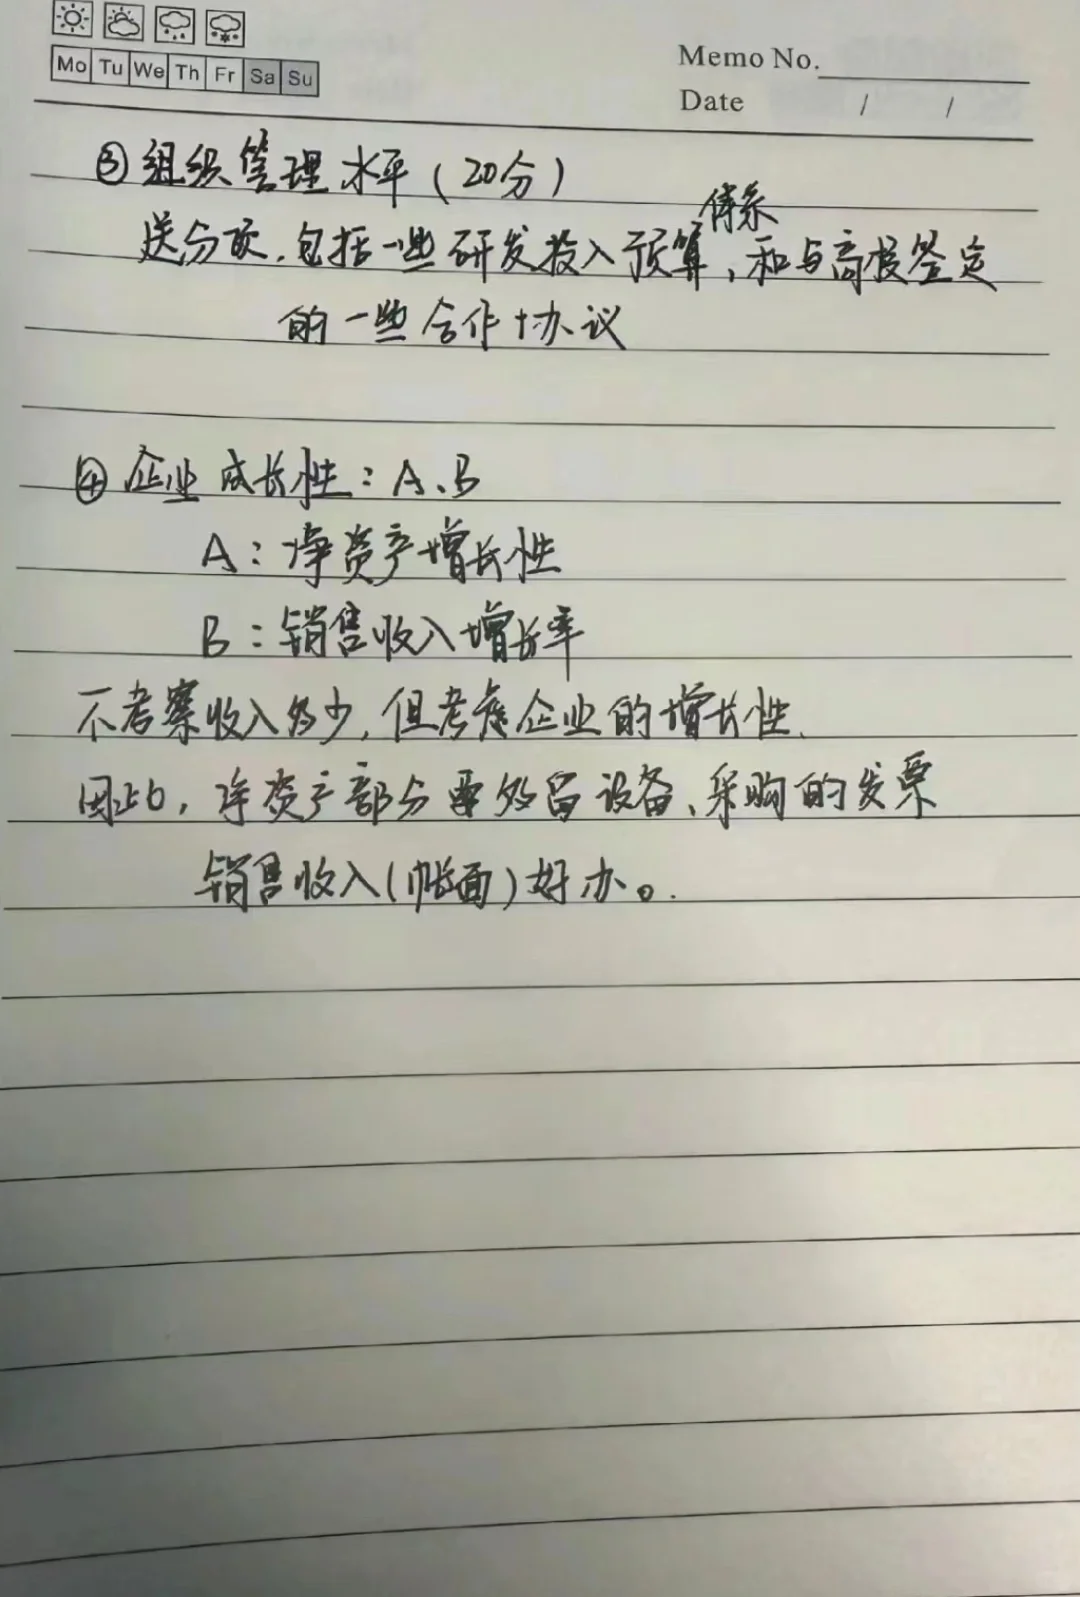 Mo Tu We Th Fr Sa Su
Memo No.
Date / /
③组织管理水平(20分)
体系
送分项,包括一些研发投入预算,和与高校签定
的一些合作协议
④企业成长性:A、B
A:净资产增长性
B:销售收入增长率
不考察收入多少,但考虑企业的增长性.
因此,净资产部分要多留设备、采购的发票
销售收入(帐面)好办。.